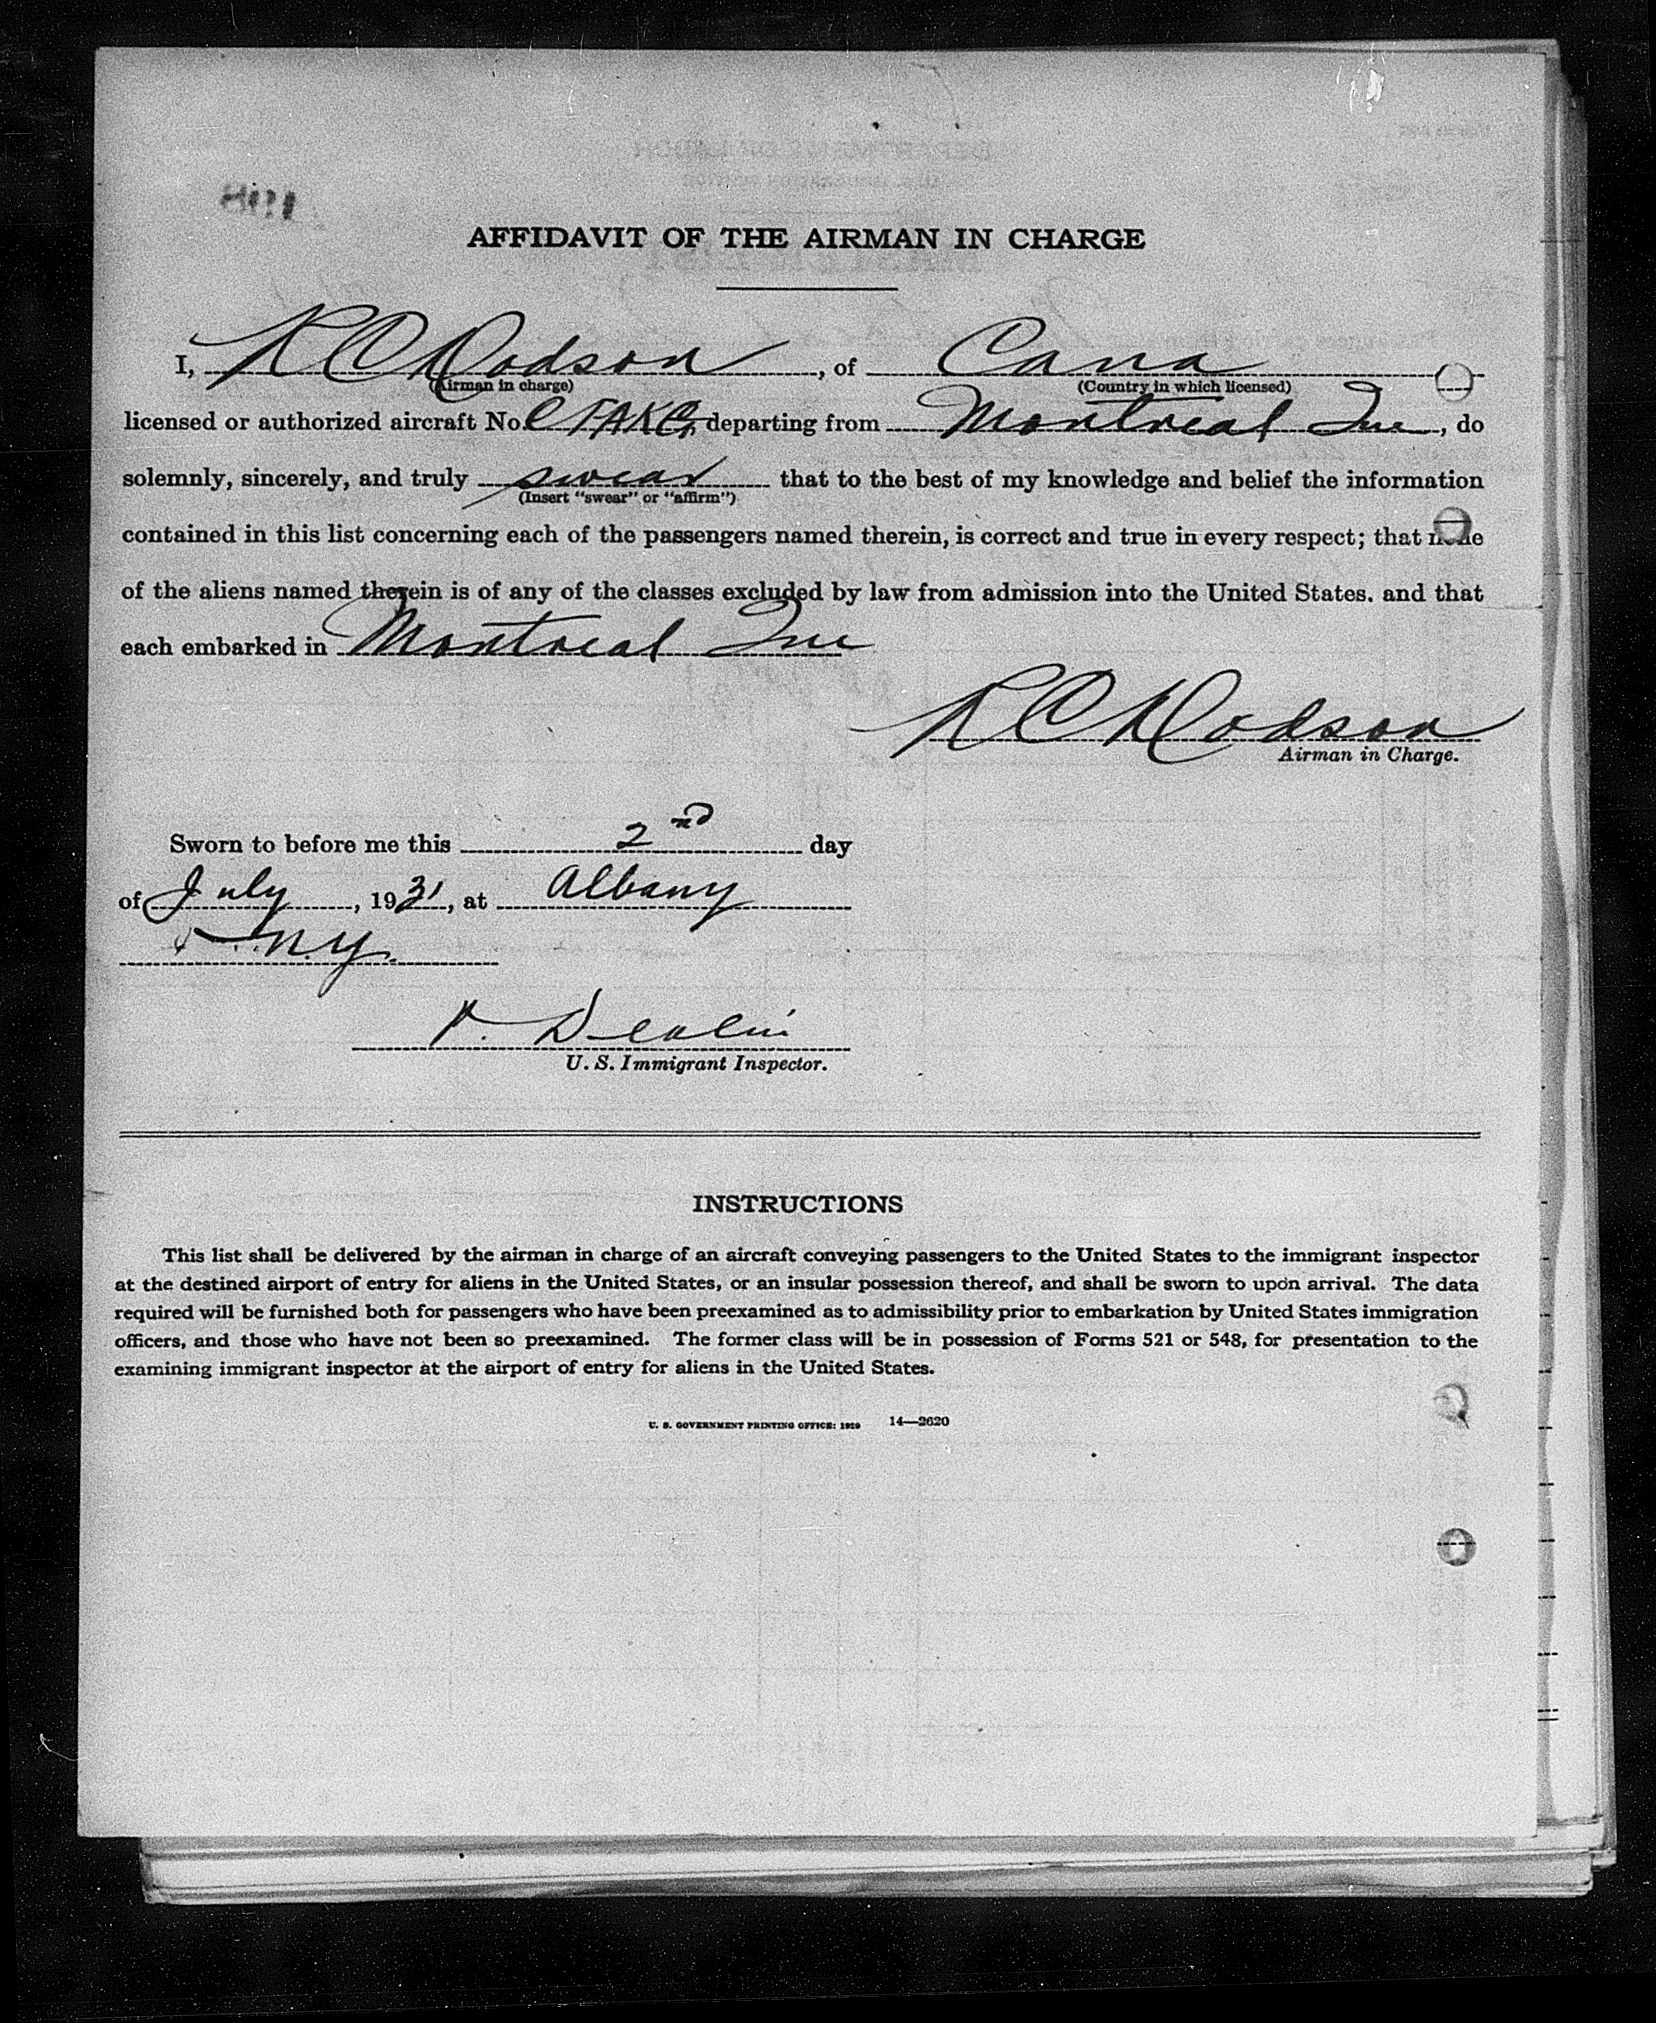 AFFIDAVIT OF THE AIRMAN IN CHARGE
I, R C Dodson, of Cana
(Airman in charge) (Country in which licensed)
licensed or authorized aircraft No. CFAKG, departing from Montreal Que, do
solemnly, sincerely, and truly swear that to the best of my knowledge and belief the information
(Insert "swear" or "affirm")
contained in this list concerning each of the passengers named therein, is correct and true in every respect; that none
of the aliens named therein is of any of the classes excluded by law from admission into the United States, and that
each embarked in Montreal Que
R C Dodson
Airman in Charge.
Sworn to before me this 2nd day
of July, 1931, at Albany
N.Y.
U. S. Immigrant Inspector.
INSTRUCTIONS
This list shall be delivered by the airman in charge of an aircraft conveying passengers to the United States to the immigrant inspector
at the destined airport of entry for aliens in the United States, or an insular possession thereof, and shall be sworn to upon arrival. The data
required will be furnished both for passengers who have been preexamined as to admissibility prior to embarkation by United States immigration
officers, and those who have not been so preexamined. The former class will be in possession of Forms 521 or 548, for presentation to the
examining immigrant inspector at the airport of entry for aliens in the United States.
U. S. GOVERNMENT PRINTING OFFICE: 1929 14—2620